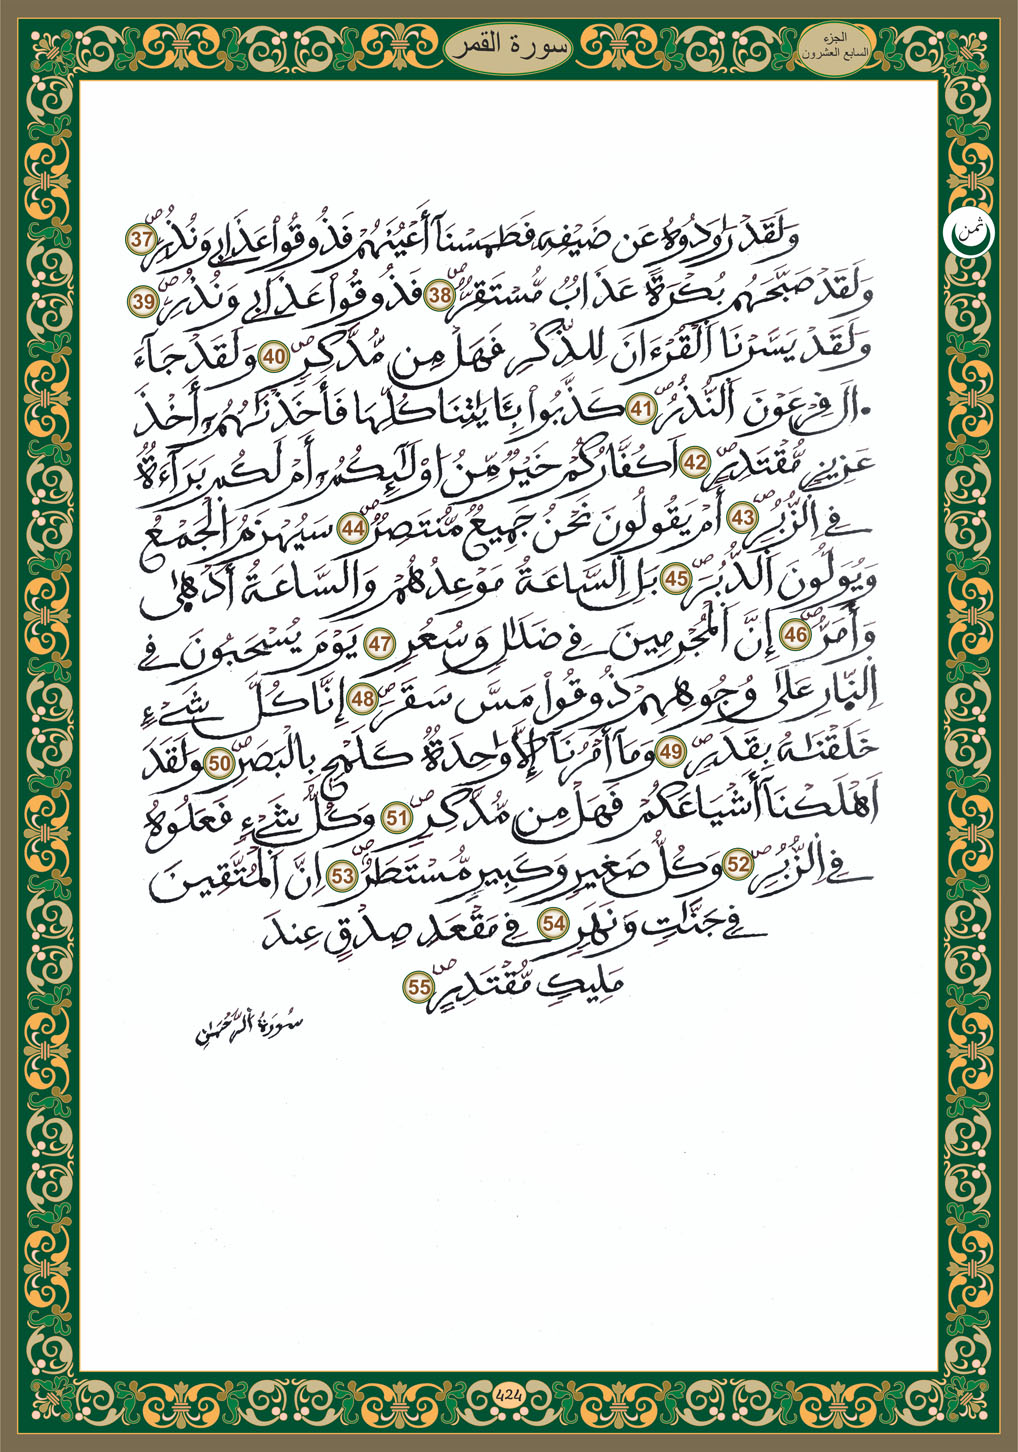 الجزء
السابع العشرون
سورة القمر
ثمن
وَلَقَدْ رَٰوَدُوهُ عَن ضَيْفِهِۦ فَطَمَسْنَآ أَعْيُنَهُمْ فَذُوقُواْ عَذَابِي وَنُذُرِۦ ص 37
وَلَقَدْ صَبَّحَهُم بُكْرَةً عَذَابٌ مُّسْتَقِرٌّ ص 38 فَذُوقُواْ عَذَابِي وَنُذُرِۦ ص 39
وَلَقَدْ يَسَّرْنَا اَ۬لْقُرْءَانَ لِلذِّكْرِ فَهَلْ مِن مُّدَّكِرٍ ص 40 وَلَقَدْ جَآءَ
ءَالَ فِرْعَوْنَ اَ۬لنُّذُرُ ص 41 كَذَّبُواْ بِـَٔايَٰتِنَا كُلِّهَا فَأَخَذْنَٰهُمُۥٓ أَخْذَ
عَزِيزٍ مُّقْتَدِرٍ ص 42 اَكُفَّارُكُمْ خَيْرٌ مِّنُ ا۟وْلَٰٓئِكُمُۥٓ أَمْ لَكُم بَرَآءَةٌ
فِے اِ۬لزُّبُرِ ص 43 أَمْ يَقُولُونَ نَحْنُ جَمِيعٌ مُّنتَصِرٌ ص 44 سَيُهْزَمُ اُ۬لْجَمْعُ
وَيُوَلُّونَ اَ۬لدُّبُرَ ص 45 بَلِ اِ۬لسَّاعَةُ مَوْعِدُهُمْ وَالسَّاعَةُ أَدْهَىٰ
وَأَمَرُّ ص 46 إِنَّ اَ۬لْمُجْرِمِينَ فِے ضَلَٰلٍ وَسُعُرٍ 47 يَوْمَ يُسْحَبُونَ فِے
اِ۬لنّ۪ارِ عَلَىٰ وُجُوهِهِمْ ذُوقُواْ مَسَّ سَقَرَ ص 48 إِنَّا كُلَّ شَےْءٍ
خَلَقْنَٰهُ بِقَدَرٍ ص 49 وَمَآ أَمْرُنَآ إِلَّا وَٰحِدَةٌ كَلَمْحٍ بِالْبَصَرِ ص 50 وَلَقَدَ
اَهْلَكْنَآ أَشْيَاعَكُمْ فَهَلْ مِن مُّدَّكِرٍ ص 51 وَكُلُّ شَےْءٍ فَعَلُوهُ
فِے اِ۬لزُّبُرِ ص 52 وَكُلُّ صَغِيرٍ وَكَبِيرٍ مُّسْتَطَرٌ ص 53 اِنَّ اَ۬لْمُتَّقِينَ
فِے جَنَّٰتٍ وَنَهَرٍ 54 فِے مَقْعَدِ صِدْقٍ عِندَ
مَلِيكٍ مُّقْتَدِرٍ ص 55
سورة الرَّحْمَٰنِ
424